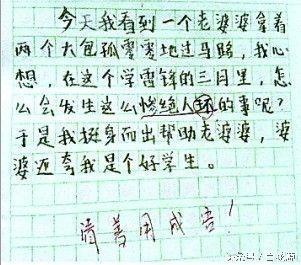 今天我看到一个老婆婆拿着
两个大包孤零零地过马路，我心
想，在这个学雷锋的三月里，怎
么会发生这么惨绝人环的事呢？
于是我挺身而出帮助老婆婆，婆
婆还夸我是个好学生。
请善用成语！
头条号 /